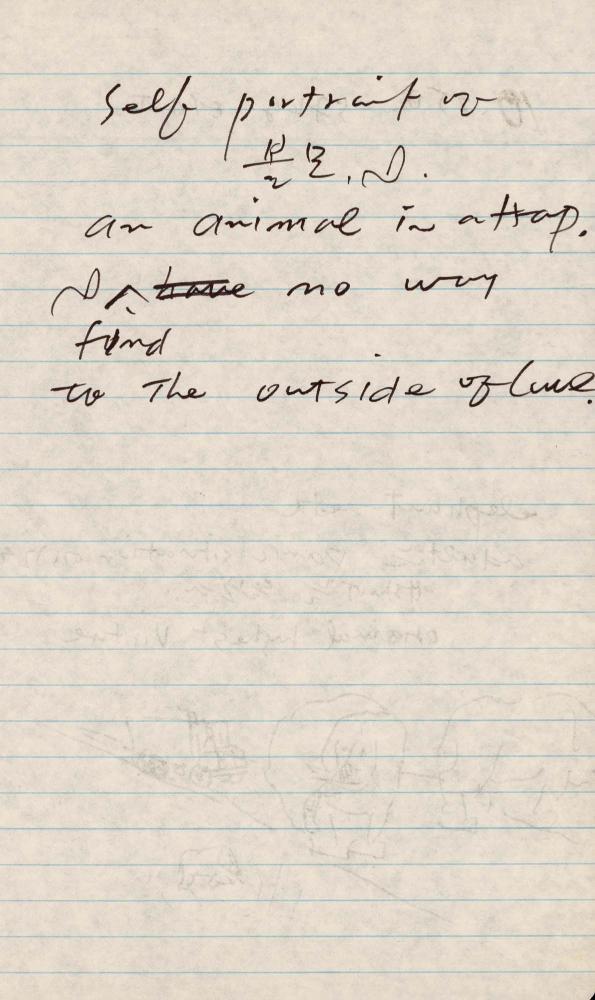 Self portrait of
볼모, I.
an animal in a trap.
I have no way
find
to The outside of love.